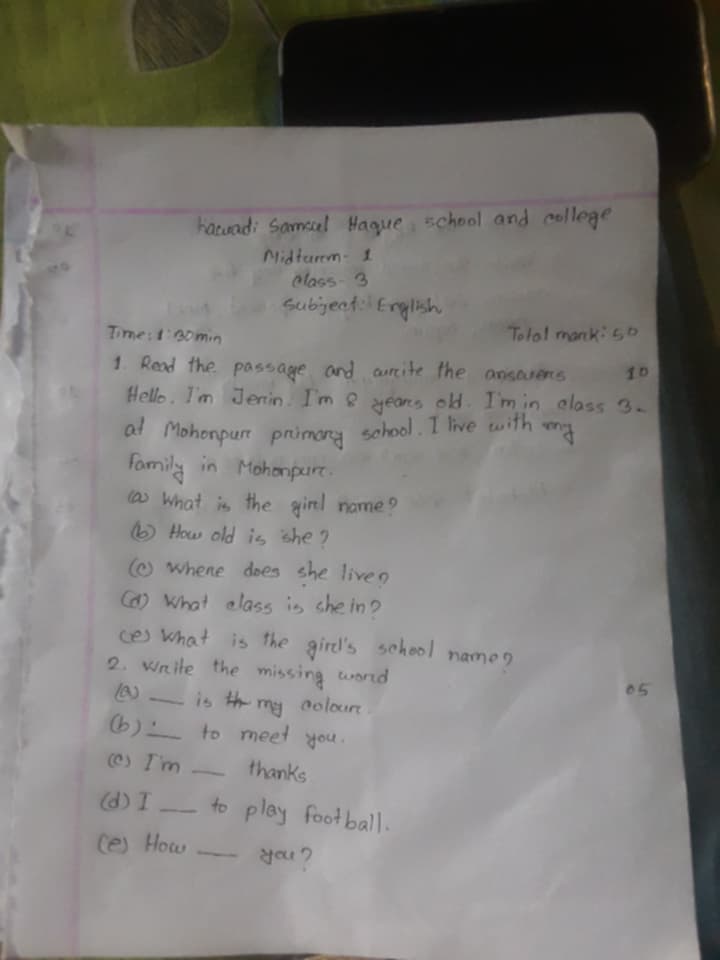 Haque school and college
Midturm- 1
class- 3
Subject: English
Time: 1:30min Total mark: 50
1. Read the passage and write the answers 10
Hello. I'm Jerin. I'm 8 years old. I'm in class 3.
at Mohonpur primary school. I live with my
family in Mohonpur.
(a) What is the girl name?
(b) How old is she?
(c) Where does she live?
(d) What class is she in?
(e) What is the girl's school name?
2. Write the missing word 05
(a) __ is my colour.
(b) __ to meet you.
(c) I'm __ thanks
(d) I __ to play football.
(e) How __ you?